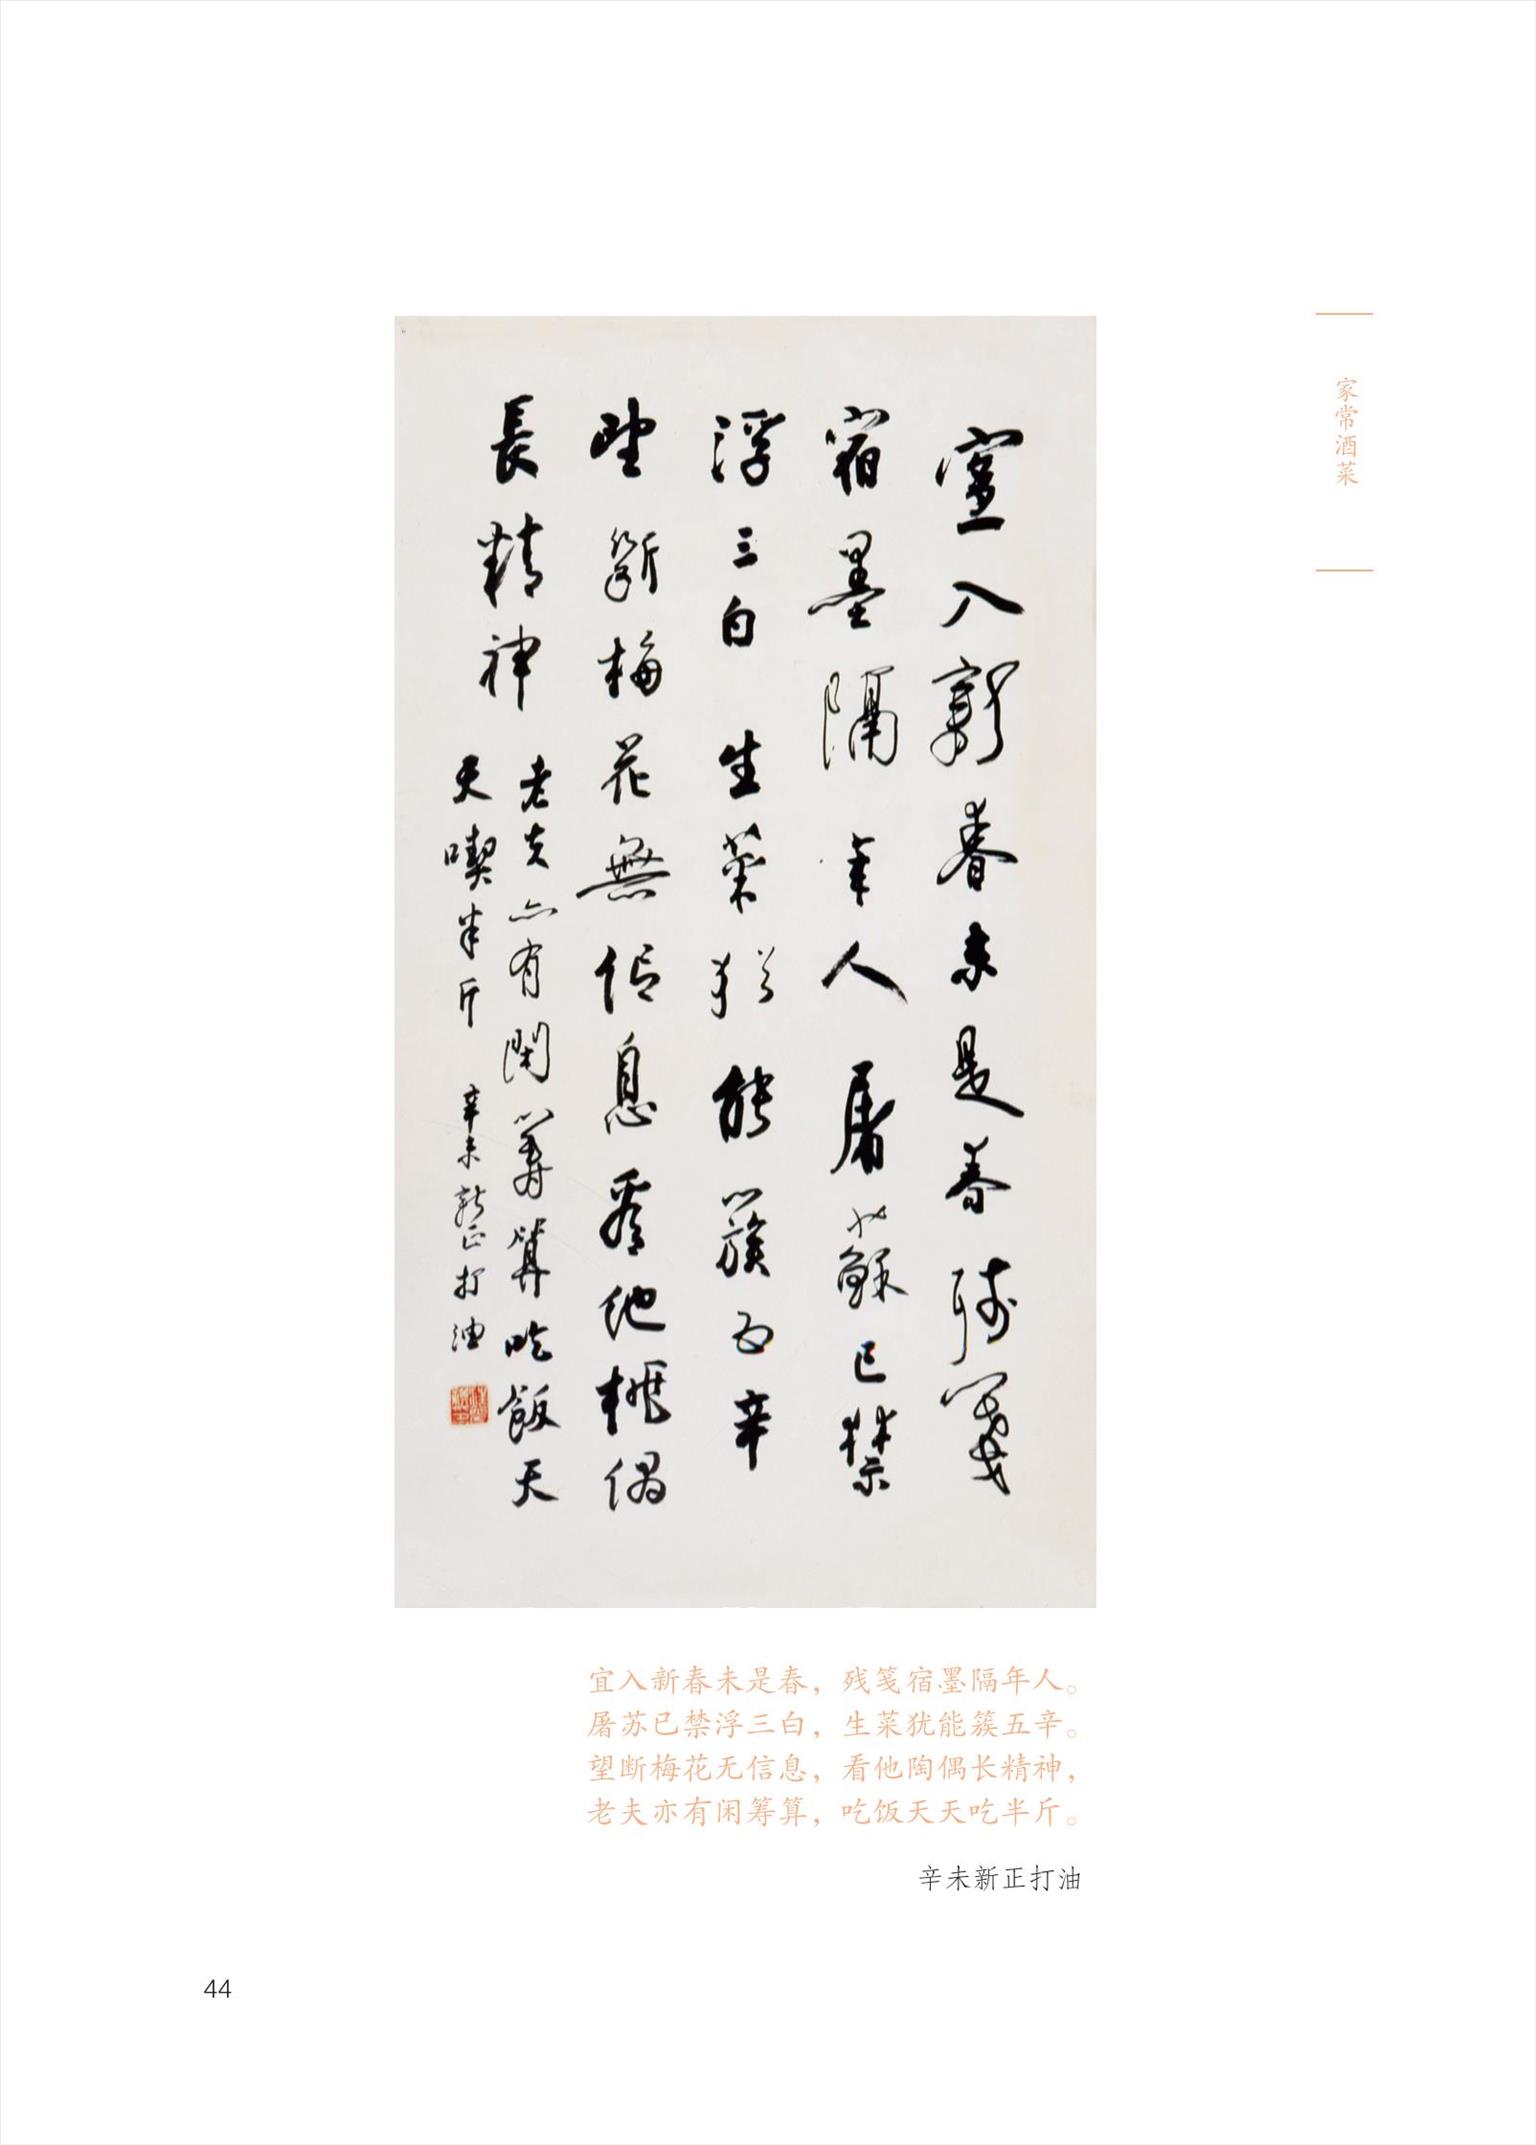 家常酒菜
宜入新春未是春殘箋
宿墨隔年人屠蘇已禁
浮三白生菜猶能簇五辛
望斷梅花無信息看他桃偶
長精神
老夫亦有閑籌算吃飯天
天喫半斤辛未新正打油
宜入新春未是春，残笺宿墨隔年人。
屠苏已禁浮三白，生菜犹能簇五辛。
望断梅花无信息，看他陶偶长精神，
老夫亦有闲筹算，吃饭天天吃半斤。
辛未新正打油
44